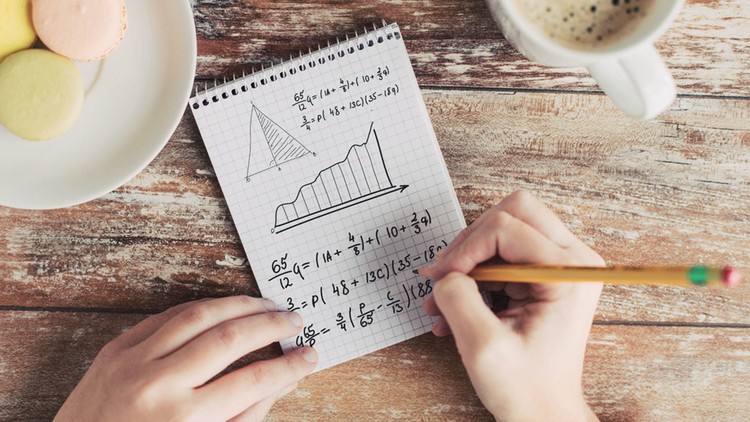 65/12 q = (1A + 4/8) + (10 + 2/3q)
3/4 = P( 48 + 13C)(35 - 18q)
65/12 q = (1A + 4/8) + (10 + 2/3q)
3/ = P( 48 + 13C)(35 - 18
q 65/P = 3/4 (P/65 - C/13)(88